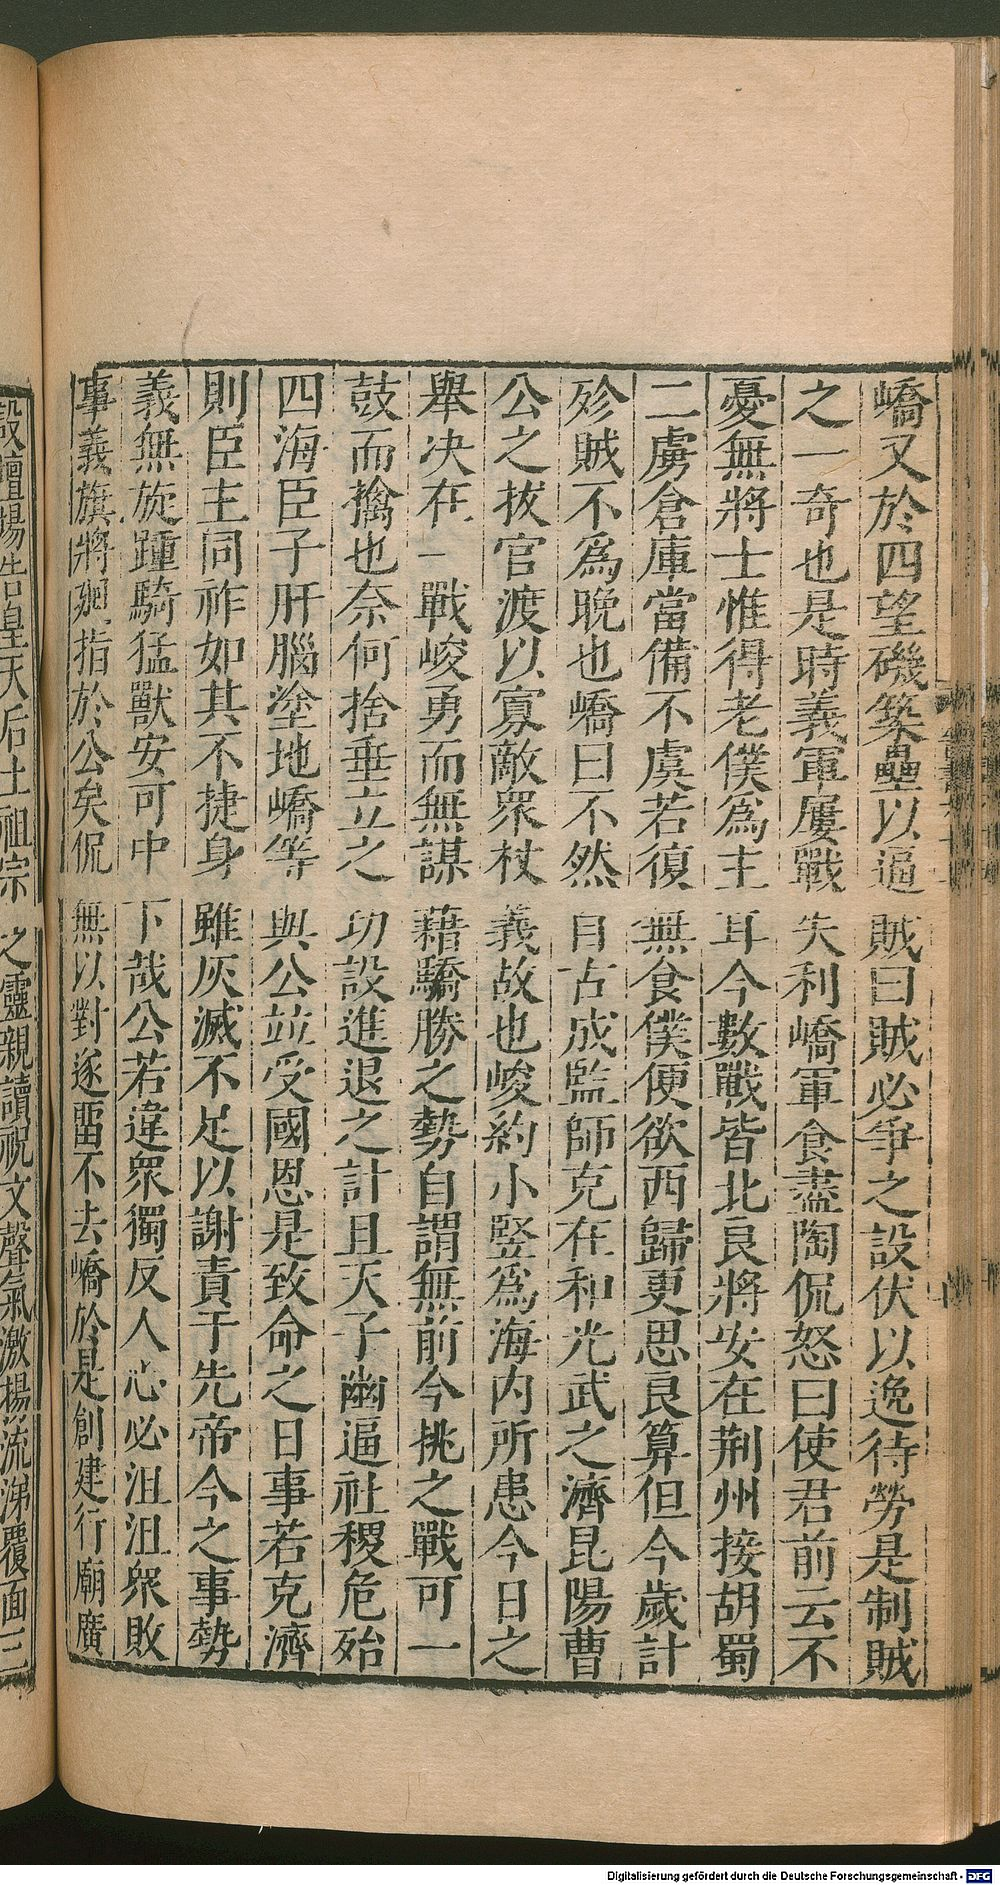 嶠又於四望磯築壘以逼賊曰賊必爭之設伏以逸待勞是制賊
之一奇也是時義軍屢戰失利嶠軍食盡陶侃怒曰使君前云不
憂無將士惟得老僕爲主耳今數戰皆北良將安在荆州接胡蜀
二虜倉庫當備不虞若復無食僕便欲西歸更思良算但今歲計
殄賊不爲晚也嶠曰不然自古成監師克在和光武之濟昆陽曹
公之拔官渡以寡敵衆杖義故也峻約小竪爲海内所患今日之
舉决在一戰峻勇而無謀藉驕勝之勢自謂無前今挑之戰可一
鼓而擒也奈何捨垂立之功設進退之計且天子幽逼社稷危殆
四海臣子肝腦塗地嶠等與公竝受國恩是致命之日事若克濟
則臣主同祚如其不捷身雖灰滅不足以謝責于先帝今之事勢
義無旋踵騎猛獸安可中下哉公若違衆獨反人心必沮沮衆敗
事義旗將廻指於公矣侃無以對遂留不去嶠於是創建行廟廣
設壇場告皇天后土祖宗之靈親讀祝文聲氣激揚流涕覆面三
Digitalisierung gefördert durch die Deutsche Forschungsgemeinschaft - DFG